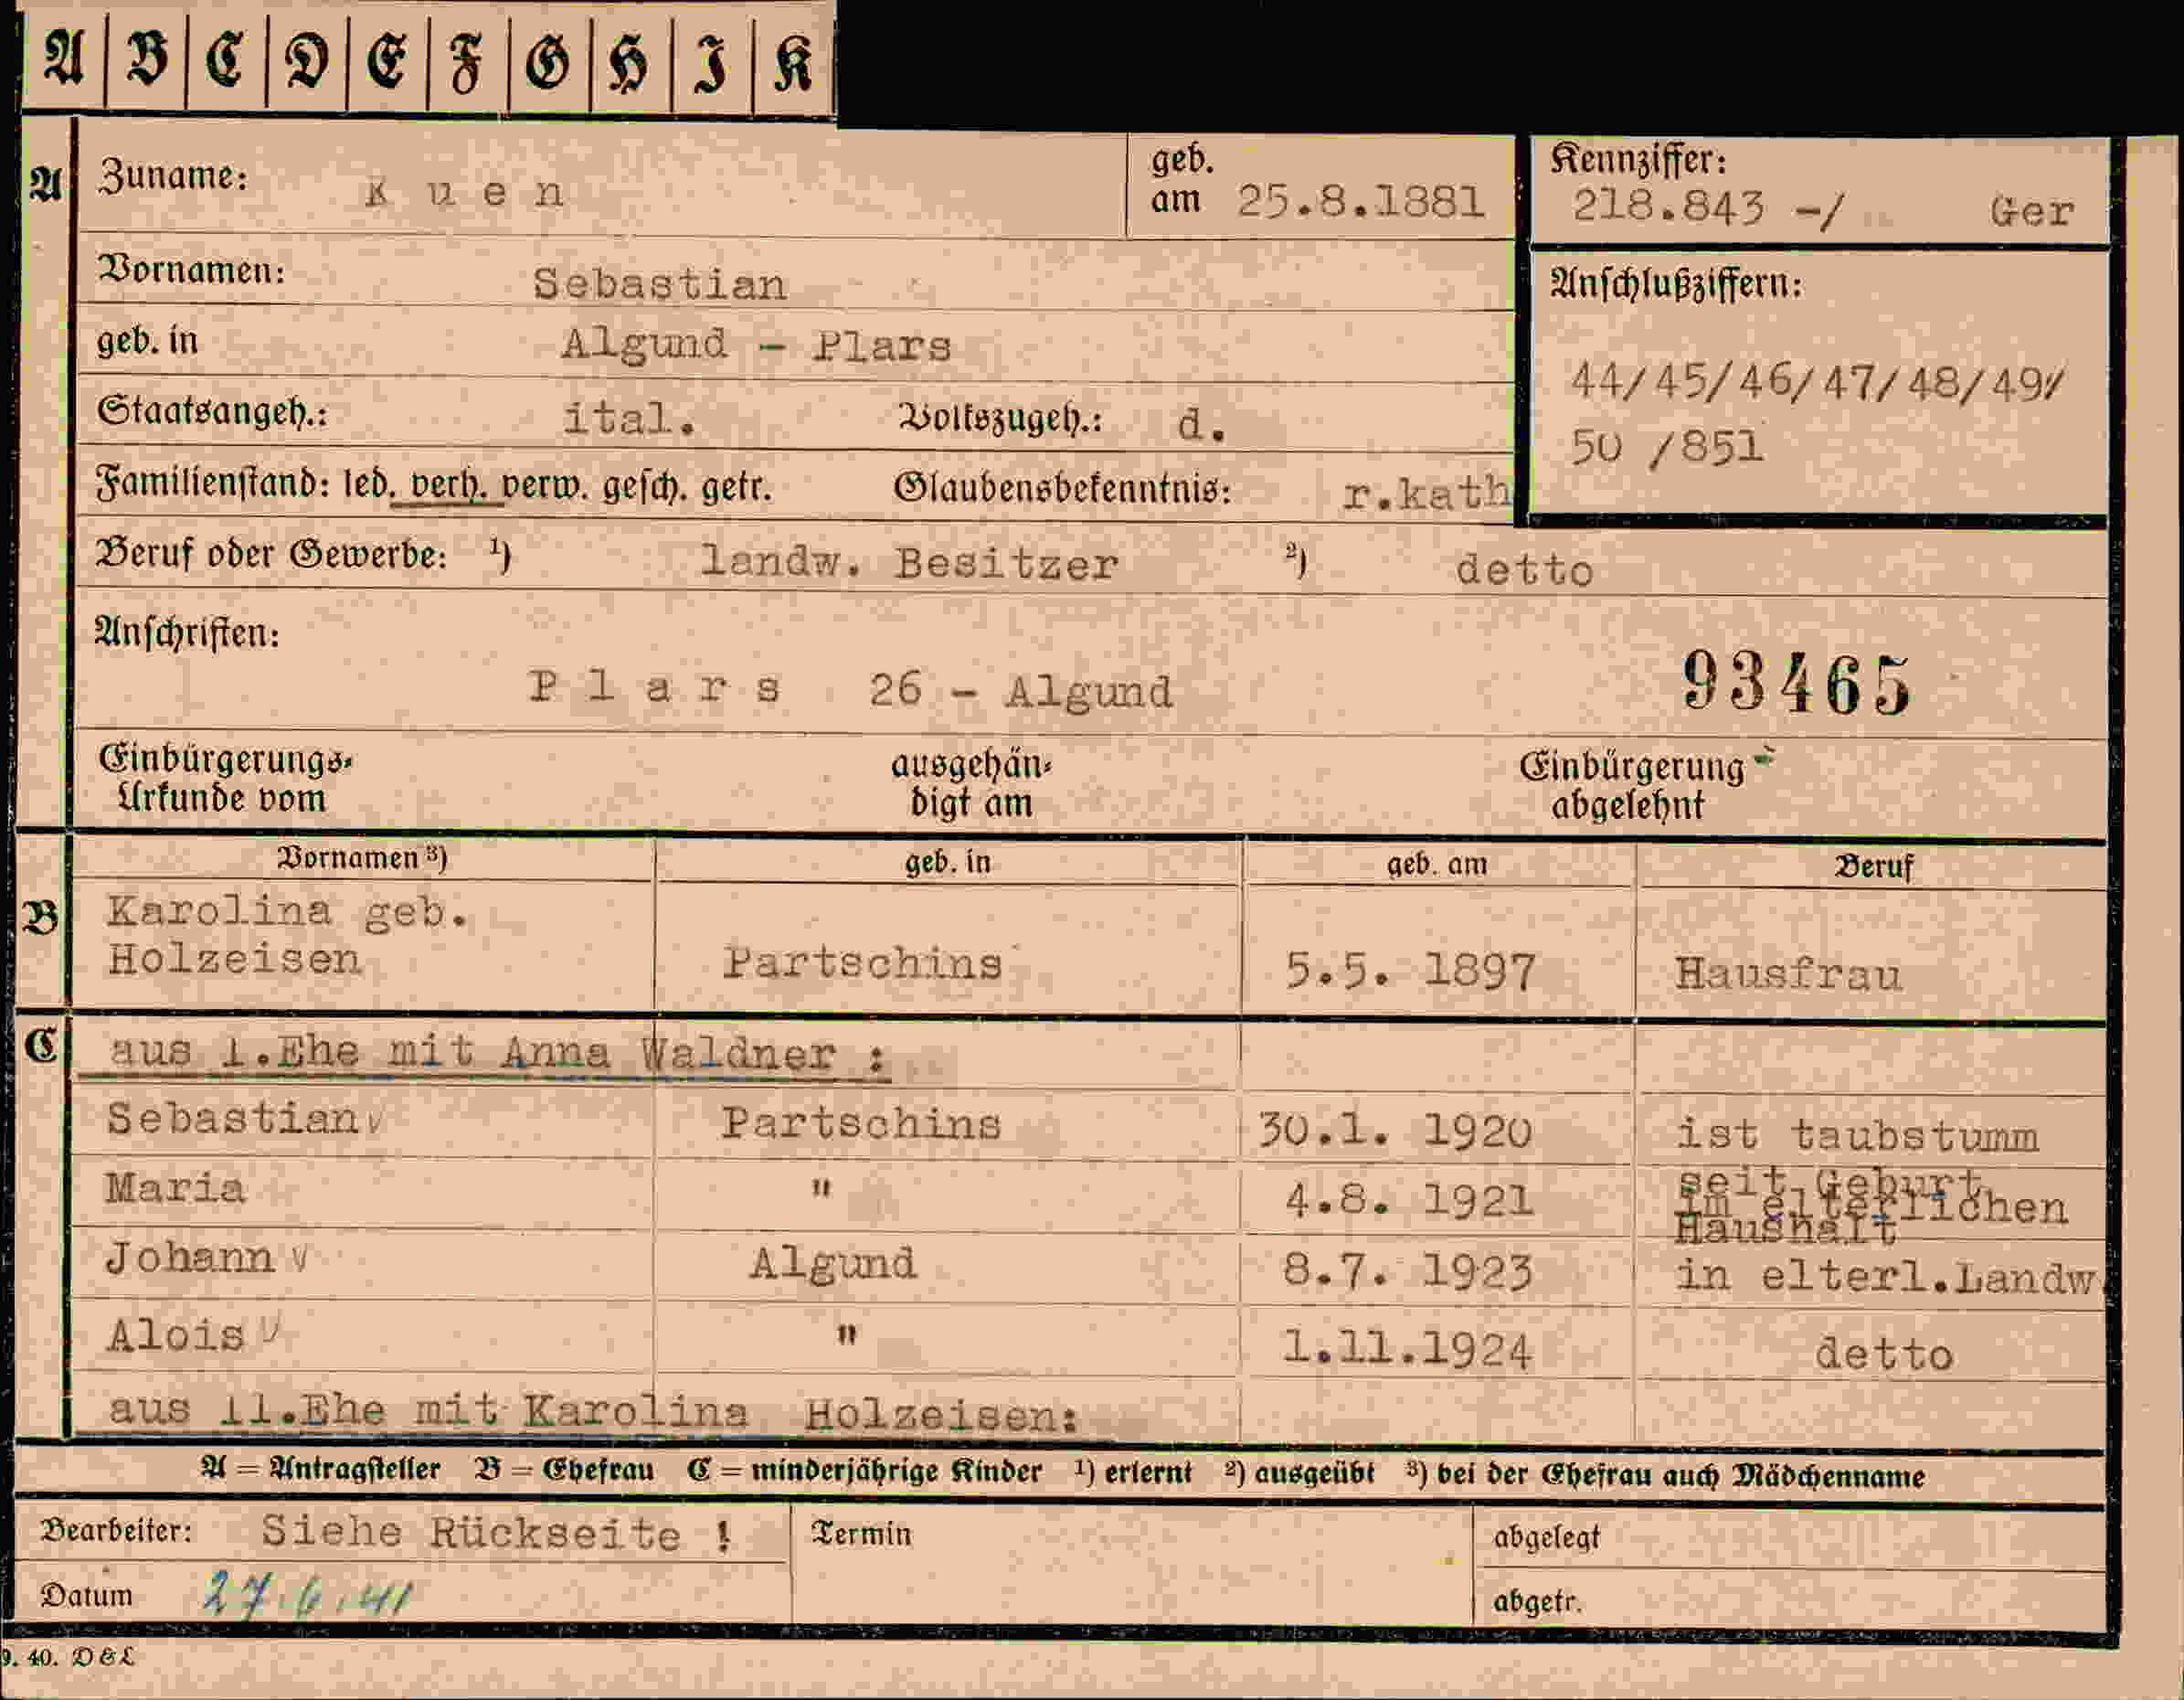 A B C D E F G H I K
A Zuname: Kuen geb. am 25.8.1881 Kennziffer: 218.843 -/ Ger
Vornamen: Sebastian Anschlußziffern:
geb. in Algund - Plars
44/45/46/47/48/49/
Staatsangeh.: ital. Volkszugeh.: d.
50 /851
Familienstand: led. verh. verw. gesch. getr. Glaubensbekenntnis: r.kath
Beruf oder Gewerbe: 1) landw. Besitzer 2) detto
Anschriften:
Plars 26 - Algund 93465
Einbürgerungs-Urkunde vom ausgehändigt am Einbürgerung abgelehnt
Vornamen 3) geb. in geb. am Beruf
B Karolina geb.
Holzeisen Partschins 5.5. 1897 Hausfrau
C aus 1.Ehe mit Anna Waldner :
Sebastian Partschins 30.1. 1920 ist taubstumm
seit Geburt
Maria " 4.8. 1921 im elterlichen
Haushalt
Johann Algund 8.7. 1923 in elterl.Landw.
Alois " 1.11.1924 detto
aus 11.Ehe mit Karolina Holzeisen:
A = Antragsteller B = Ehefrau C = minderjährige Kinder 1) erlernt 2) ausgeübt 3) bei der Ehefrau auch Mädchenname
Bearbeiter: Siehe Rückseite ! Termin abgelegt
Datum 27.6.41 abgetr.
9. 40. D & L